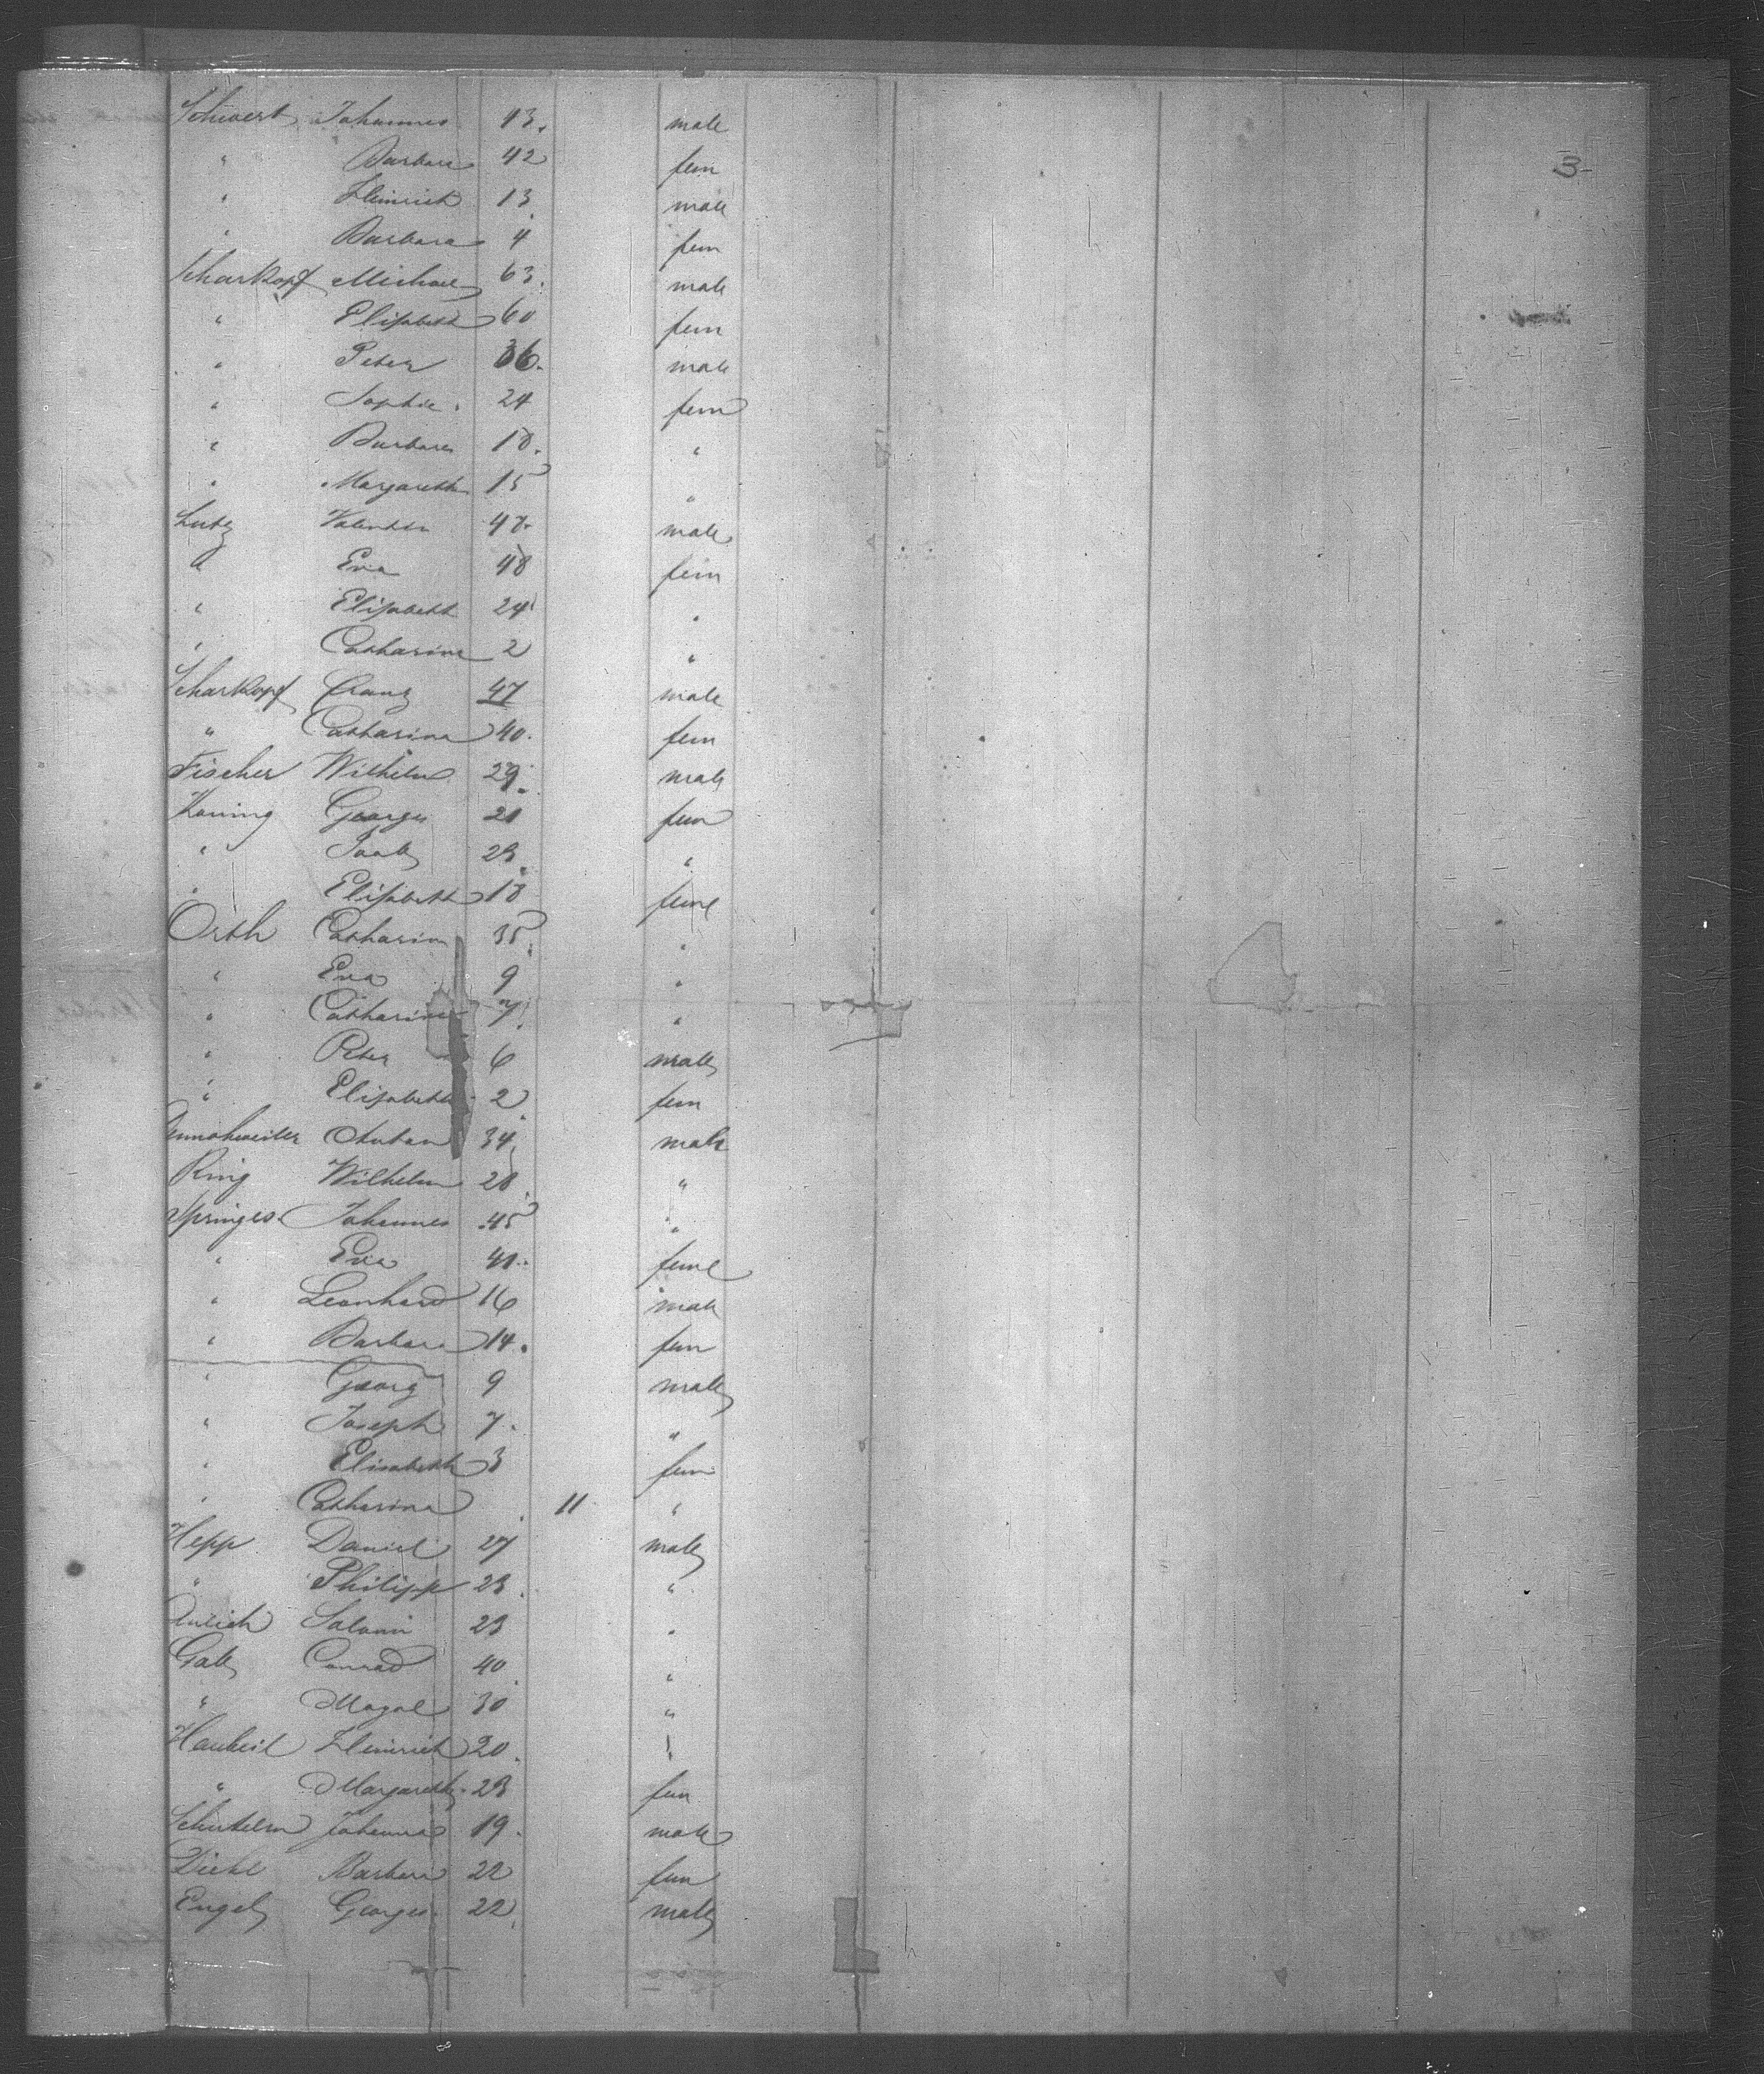 Schwert Johannes 43. male
" Barbara 42 fem
" Heinrich 13 male
" Barbara 4 fem
Scharkopf Michael 63. male
" Elisabeth 60 fem
" Peter 36. male
" Sophie. 24 fem
" Barbara 18. "
" Margareth 15 "
Lutz Valentin 47. male
" Eva 48 fem
" Elisabeth 24 "
" Catharina 2 "
Scharkopf Franz 47 male
" Catharina 40. fem
Fischer Wilhelm 29. male
Koning George 21 fem
" Jacob 23. "
" Elisabeth 18 feme
Orth Catharin 35. "
" Eva 9 "
" Catharina 7. "
" Peter 6 male
" Elisabeth 2 fem
Anton 34. male
Ring Wilhelm 28 "
Springer Johannes 45 "
" Eva 41. feme
" Leonhard 16 male
" Barbara 14. fem
" Georg 9 male
" Joseph 7. "
" Elisabeth 3 fem
" Catharina 11 "
Hepp Daniel 27 male
" Philipp 23. "
Salomi 23 "
Conrad 40 "
" Magal 30 "
Heinrich 20. "
" Margareth. 23 fem
Johannes 19. male
Diehl Barbara 22 fem
Engel George. 22. male
3-